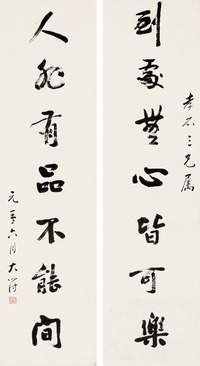 到處無心皆可樂
孝石三兄屬
人非有品不能閒
元年六月大澂